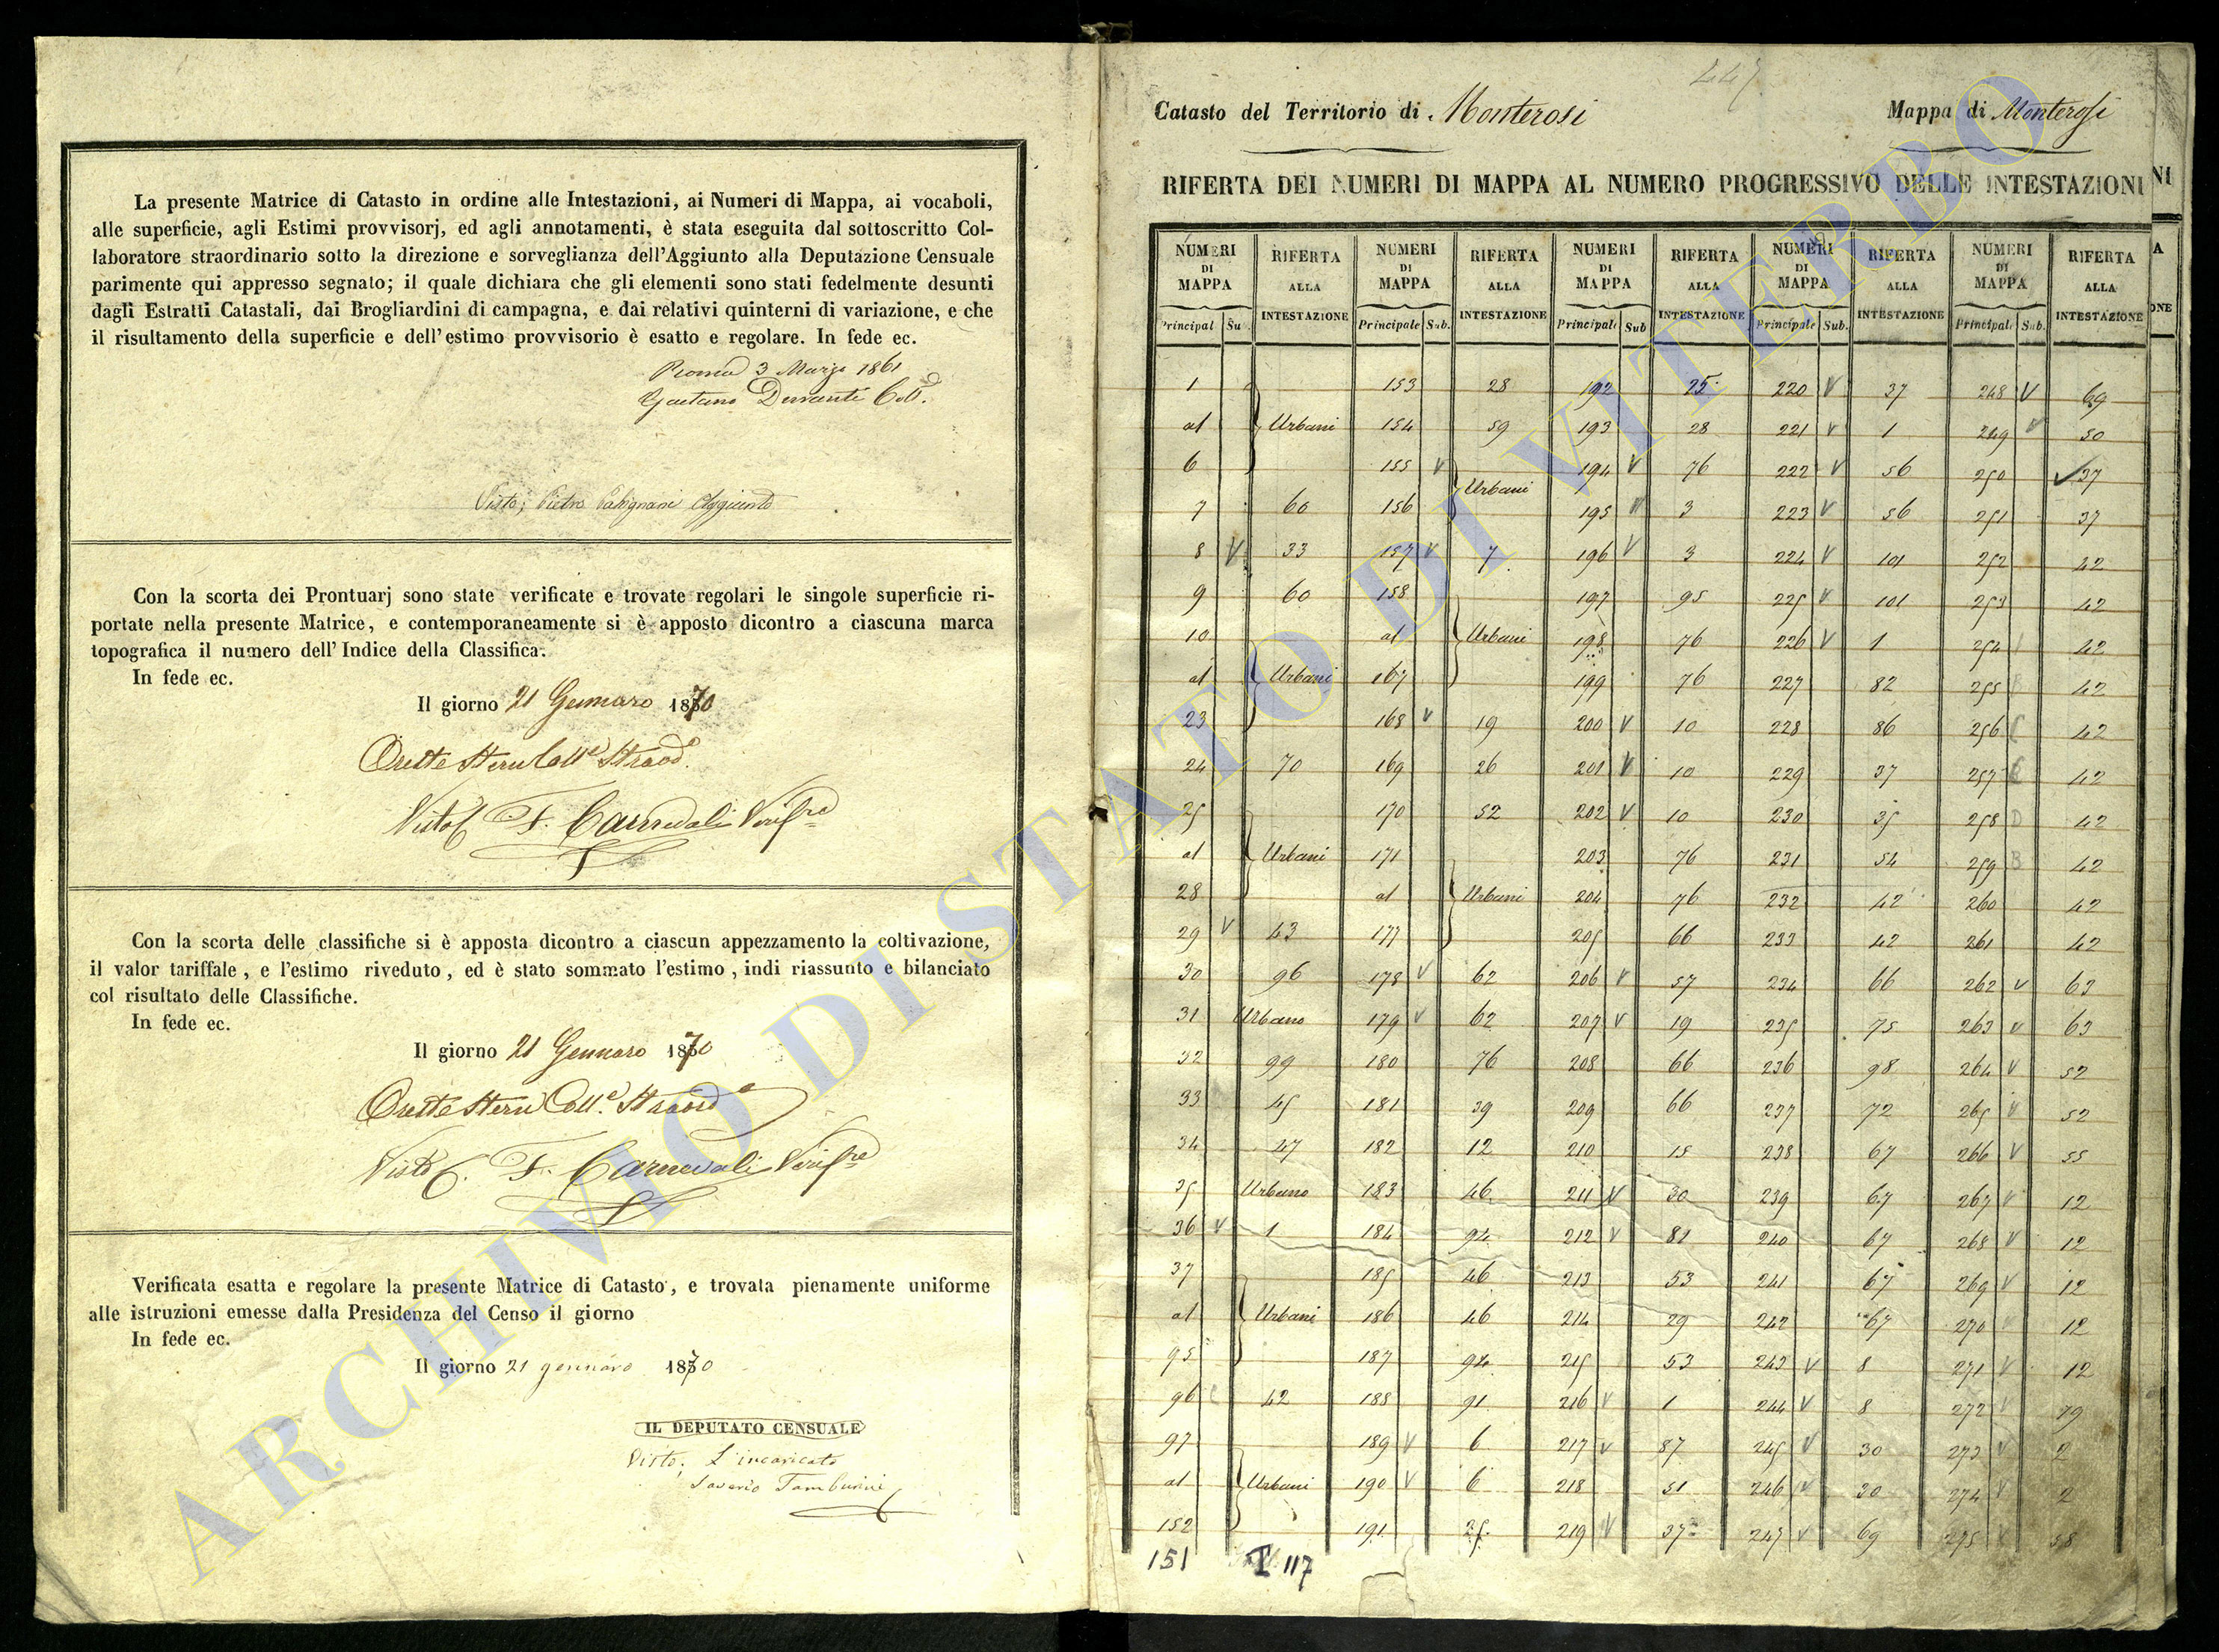 La presente Matrice di Catasto in ordine alle Intestazioni, ai Numeri di Mappa, ai vocaboli,
alle superficie, agli Estimi provvisorj, ed agli annotamenti, è stata eseguita dal sottoscritto Col-
laboratore straordinario sotto la direzione e sorveglianza dell'Aggiunto alla Deputazione Censuale
parimente qui appresso segnato; il quale dichiara che gli elementi sono stati fedelmente desunti
dagli Estratti Catastali, dai Brogliardini di campagna, e dai relativi quinterni di variazione, e che
il risultamento della superficie e dell'estimo provvisorio è esatto e regolare. In fede ec.
Roma 3 Marzo 1861
Gaetano Coll.
Visto; Pietro Aggiunto
Con la scorta dei Prontuarj sono state verificate e trovate regolari le singole superficie ri-
portate nella presente Matrice, e contemporaneamente si è apposto dicontro a ciascuna marca
topografica il numero dell'Indice della Classifica.
In fede ec.
Il giorno 21 Gennaro 1870
Oreste Stern Coll.e Straord.
Visto F. Carnevali Verif.re
Con la scorta delle classifiche si è apposta dicontro a ciascun appezzamento la coltivazione,
il valor tariffale, e l'estimo riveduto, ed è stato sommato l'estimo, indi riassunto e bilanciato
col risultato delle Classifiche.
In fede ec.
Il giorno 21 Gennaro 1870
Oreste Stern Coll.e Straord
Visto F. Carnevali Verif.re
Verificata esatta e regolare la presente Matrice di Catasto, e trovata pienamente uniforme
alle istruzioni emesse dalla Presidenza del Censo il giorno
In fede ec.
Il giorno 21 gennaro 1870
IL DEPUTATO CENSUALE
Visto, L'incaricato
Saverio Tamburini
447
Catasto del Territorio di Monterosi Mappa di Monterosi
RIFERTA DEI NUMERI DI MAPPA AL NUMERO PROGRESSIVO DELLE INTESTAZIONI
NUMERI DI MAPPA RIFERTA ALLA INTESTAZIONE NUMERI DI MAPPA RIFERTA ALLA INTESTAZIONE NUMERI DI MAPPA RIFERTA ALLA INTESTAZIONE NUMERI DI MAPPA RIFERTA ALLA INTESTAZIONE NUMERI DI MAPPA RIFERTA ALLA INTESTAZIONE
Principal Su. Principale Sub. Principale Sub Principale Sub. Principale Sub.
1 153 28 192 25 220 V 37 248 V 69
al Urbani 154 59 193 28 221 V 1 249 V 50
6 155 V Urbani 194 V 76 222 V 56 250 37
7 60 156 195 V 3 223 V 56 251 37
8 V 33 157 V 7 196 V 3 224 V 101 252 42
9 60 158 197 95 225 V 101 253 42
10 al Urbani 198 76 226 V 1 254 42
al Urbani 167 199 76 227 82 255 42
23 168 V 19 200 V 10 228 86 256 42
24 70 169 26 201 V 10 229 37 257 42
25 170 52 202 V 10 230 35 258 D 42
al Urbani 171 203 76 231 54 259 B 42
28 al Urbani 204 76 232 42 260 42
29 V 43 177 205 66 233 42 261 42
30 96 178 V 62 206 V 57 234 66 262 V 63
31 Urbano 179 V 62 207 V 19 235 75 263 V 63
32 99 180 76 208 66 236 98 264 V 52
33 45 181 39 209 66 237 72 265 V 52
34 47 182 12 210 15 238 67 266 V 55
35 Urbano 183 46 211 V 30 239 67 267 V 12
36 V 1 184 94 212 V 81 240 67 268 V 12
37 185 46 213 53 241 67 269 V 12
al Urbani 186 46 214 29 242 67 270 V 12
95 187 94 215 53 243 V 8 271 V 12
96 42 188 91 216 V 1 244 V 8 272 V 79
97 189 V 6 217 V 87 245 V 30 273 V 2
al Urbani 190 V 6 218 51 246 V 30 274 V 2
152 191 25 219 V 37 247 V 69 275 V 58
151 T 117
ARCHIVIO DI STATO DI VITERBO